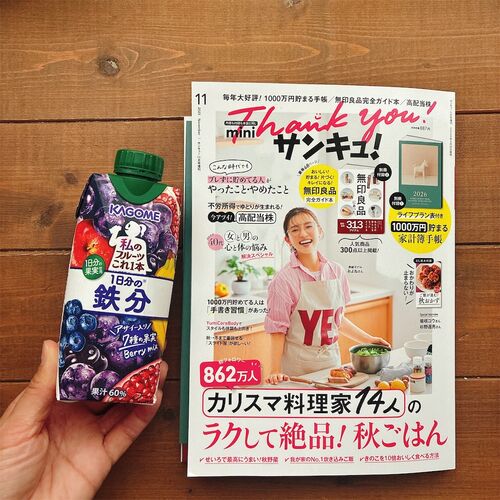 KAGOME
私の
フルーツ
これ1本
1日分の
果実
1日分の
鉄分
アサイー入り
7種の果実
Berry mix
果汁60%
11
毎年大好評!1000万円貯まる手帳/無印良品完全ガイド本/高配当株
Thank you!
mini
サンキュ!
こんな時代でも
ブレずに貯めてる人が
やったこと・やめたこと
不労所得でゆとりが生まれる!
今アツイ!高配当株
40代
女と男の
心と体の悩み
解決スペシャル
1000万円貯めてる人は
「手書き習慣」があった!
YumiCoreBodyと
おいしい!
貯まる!片づく!
キレイになる!
無印良品
完全ガイド本
無印良品
313
人気商品
300点以上掲載!
別冊付録
2026
ライフプラン表付き
1000万円貯まる
家計簿手帳
おかわりが
止まらない!
秋おかず
YES
862万人
カリスマ料理家14人の
ラクして絶品!秋ごはん
✓せいろで最高にうまい!秋野菜
✓我が家のNo.1炊き込みご飯
✓きのこを10倍おいしく食べる方法